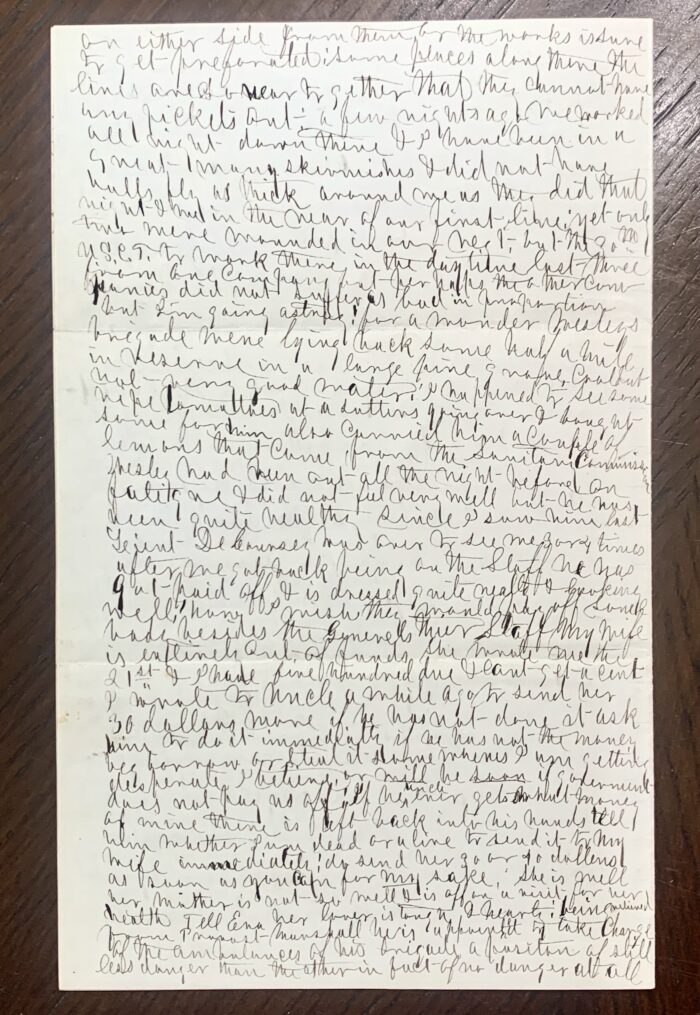 on either side from them or the works is sure
to get preforated; some places along there the
lines are so near to gether that they cannot have
any pickets out; a few nights ago we worked
all night down there & I have been in a
great many skirmishes & did not have
balls fly as thick around me as they did that
night & we in the rear of our first line; yet only
two were wounded in our regt, but the
U.S.C.T. to work there in the day time lost three
from one company but perhaps the other com
panies did not suffer as bad in proportion
but I'm going astray; for a wonder Presleys
brigade were lying back some half a mile
in reserve in a large pine grove, Cool but
not very good water; I happened to see some
ripe tomattoes at a sutlers going over & bought
some for him also carried him a couple of
lemons that came from the Sanitary Commission
Presley had been out all the night before on
fatigue & did not feel very well but he has
been quite healthy since I saw him last
Leiut. was over to see me 3 or 4 times
after we got back being on the Staff he has
got paid off & is dressed quite neatly & looking
well, I wish they would pay off some
body besides the Generals & their Staff My wife
is entirely out of funds she wrote me the
21st & I have five hundred due & cant get a cent
I wrote to Uncle a while ago to send her
30 dollars more if he has not done it ask
him to do it immediately if he has not the money
beg borrow or steal it some where I'm getting
desperate I believe, or will be soon if goverment
does not pay us off; if he uncle ever gets what money
of mine there is left back into his hands tell
him whether I'm dead or alive to send it to my
wife immediately; do send her 30 or 40 dollars
as soon as you can for my sake, she is well
her mother is not so well & is off on a visit for her
health Tell Em her lover is tough & hearty; being relieved
from Provost Marshall he is appointed to take Charge
of the ambulances of his brigade a position of still
less danger than the other in fact of no danger at all